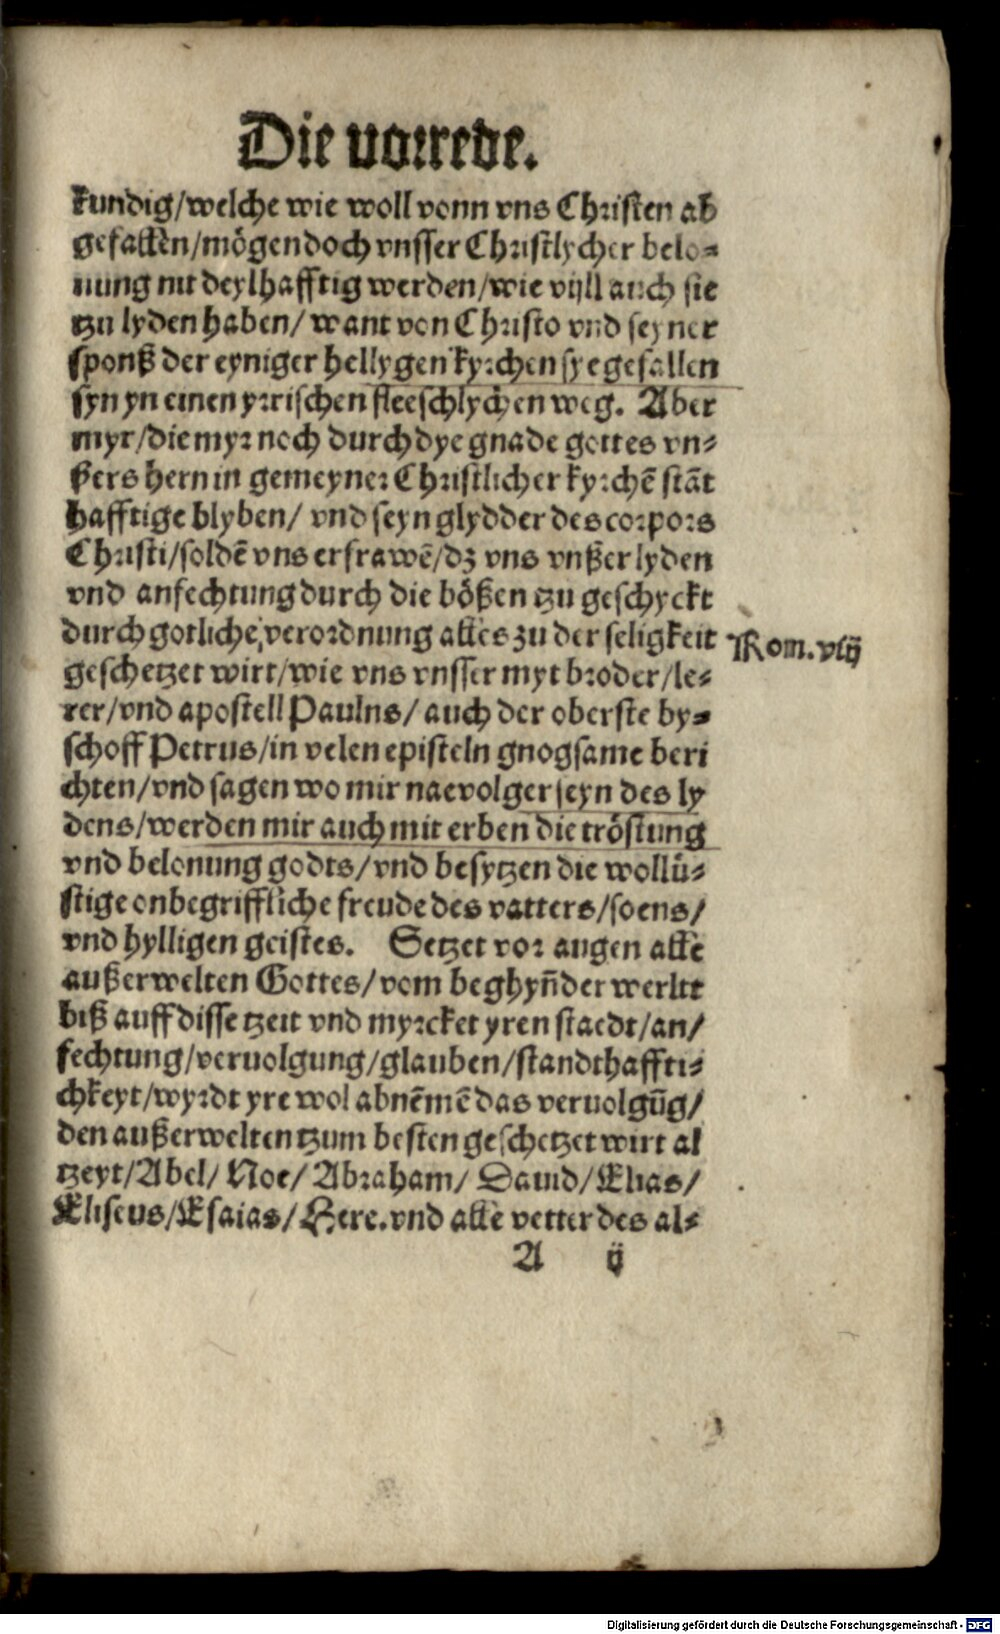 Die vorrede.
kundig/welche wie woll vonn vns Christen ab
gefallen/mögen doch vnsser Christlycher belo⸗
nung nit deylhafftig werden/wie vijll auch sie
tzu lyden haben/ want von Christo vnd seyner
sponß der eyniger hellygen kyrchen sye gefallen
syn yn einen yrrischen fleeschlychen weg. Aber
myr/die myr noch durch dye gnade gottes vn⸗
ßers hern in gemeyner Christlicher kyrchē stāt
hafftige blyben/ vnd seyn glydder des corpors
Christi/soldē vns erfrawē/dz vns vnßer lyden
vnd anfechtung durch die bößen tzu geschyckt
durch gotliche verordnung alles zu der seligkeit
Rom. viij
geschetzet wirt/wie vns vnsser myt broder/le⸗
rer/vnd apostell Paulns/ auch der oberste by⸗
schoff Petrus/in velen episteln gnogsame beri
chten/vnd sagen wo mir naevolger seyn des ly
dens/werden mir auch mit erben die tröstung
vnd belonung godts/vnd besytzen die wollü⸗
stige onbegriffliche freude des vatters/soens/
vnd hylligen geistes. Setzet vor augen alle
außerwelten Gottes/vom beghyn̄ der werltt
biß auff disse tzeit vnd myrcket yren staedt/an/
fechtung/veruolgung/glauben/standthaffti⸗
chkeyt/wyrdt yre wol abnēmē das veruolgūg/
den außerwelten tzum besten geschetzet wirt al
tzeyt/Abel/ Noe/ Abraham/ Dauid/ Elias/
Eliseus/Esaias/ Here. vnd alle vetter des al⸗
A ij
Digitalisierung gefördert durch die Deutsche Forschungsgemeinschaft - DFG